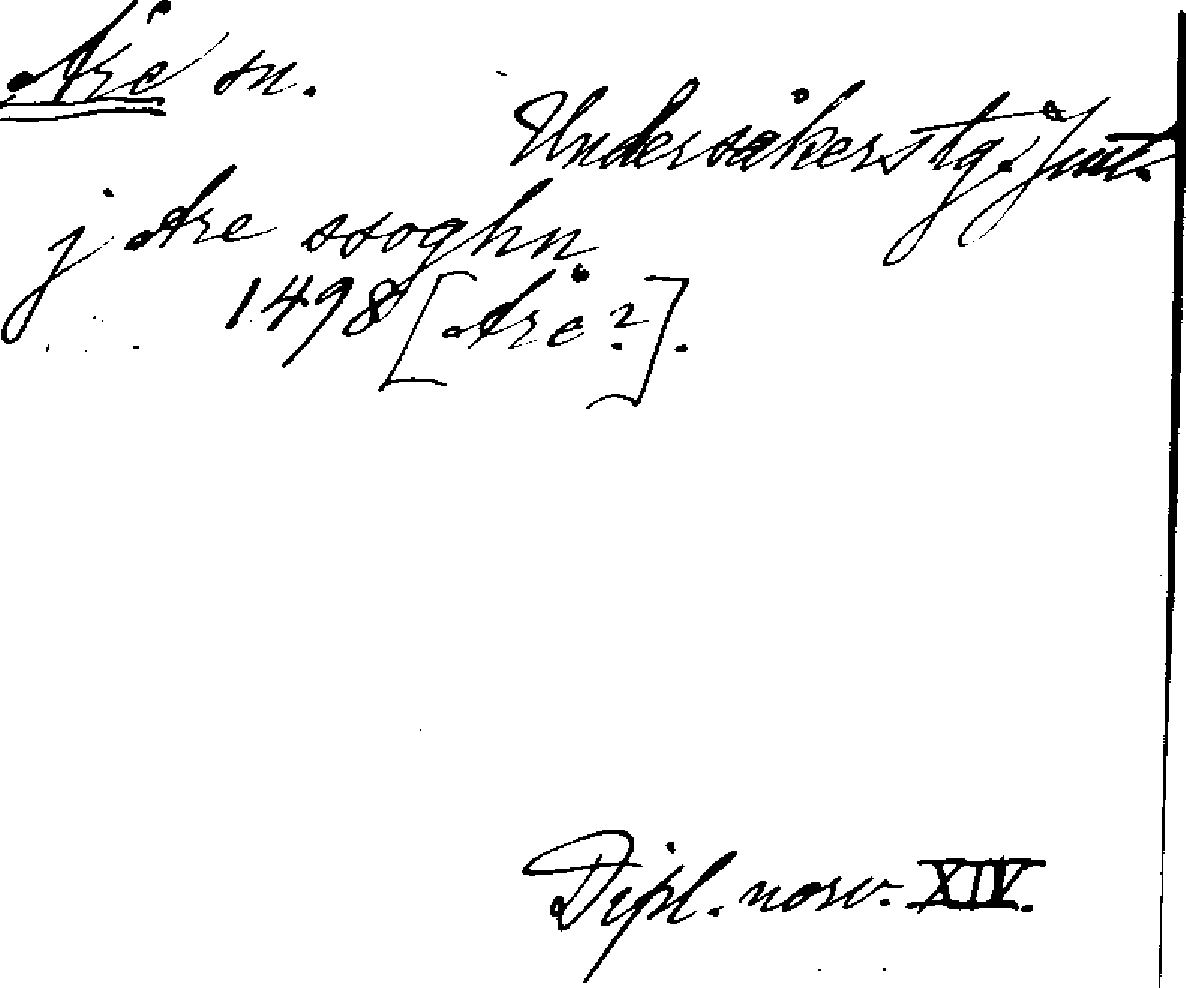 Åre sn.
Undersåkers tg. Jmt.
j Are ssoghn
1498 [Åre?].
Dipl. norv. XIV.